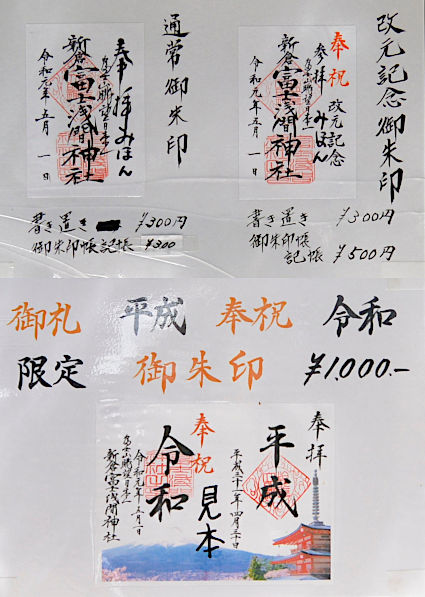 改元記念御朱印
奉祝 改元記念
参拝 みほん
富士山眺望日本一
新倉富士浅間神社
令和元年五月一日
書き置き ¥300円
御朱印帳
記帳 ¥500円
通常御朱印
奉拝 みほん
富士山眺望日本一
新倉富士浅間神社
令和元年五月一日
書き置き ¥300円
御朱印帳記帳 ¥300
御札 平成 奉祝 令和
限定 御朱印 ¥1,000.-
奉拝
平成
平成三十一年四月三十日
奉祝
見本
令和
令和元年五月一日
富士山眺望日本一
新倉富士浅間神社